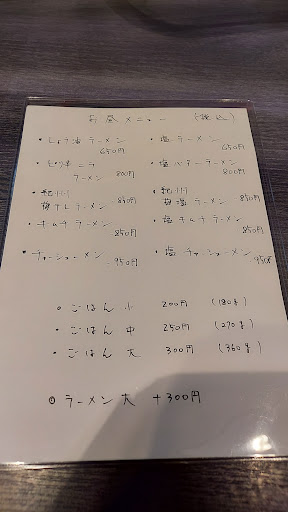 お昼メニュー (税込)
・しょう油ラーメン 650円 ・塩ラーメン 650円
・ピリ辛ニララーメン 800円 ・塩バターラーメン 800円
・ 850円 ・ 850円
・キムチラーメン 850円 ・塩キムチラーメン 850円
・チャーシューメン 950円 ・塩チャーシューメン 950円
・ごはん 小 200円 (180g)
・ごはん 中 250円 (270g)
・ごはん 大 300円 (360g)
◎ラーメン大 +300円